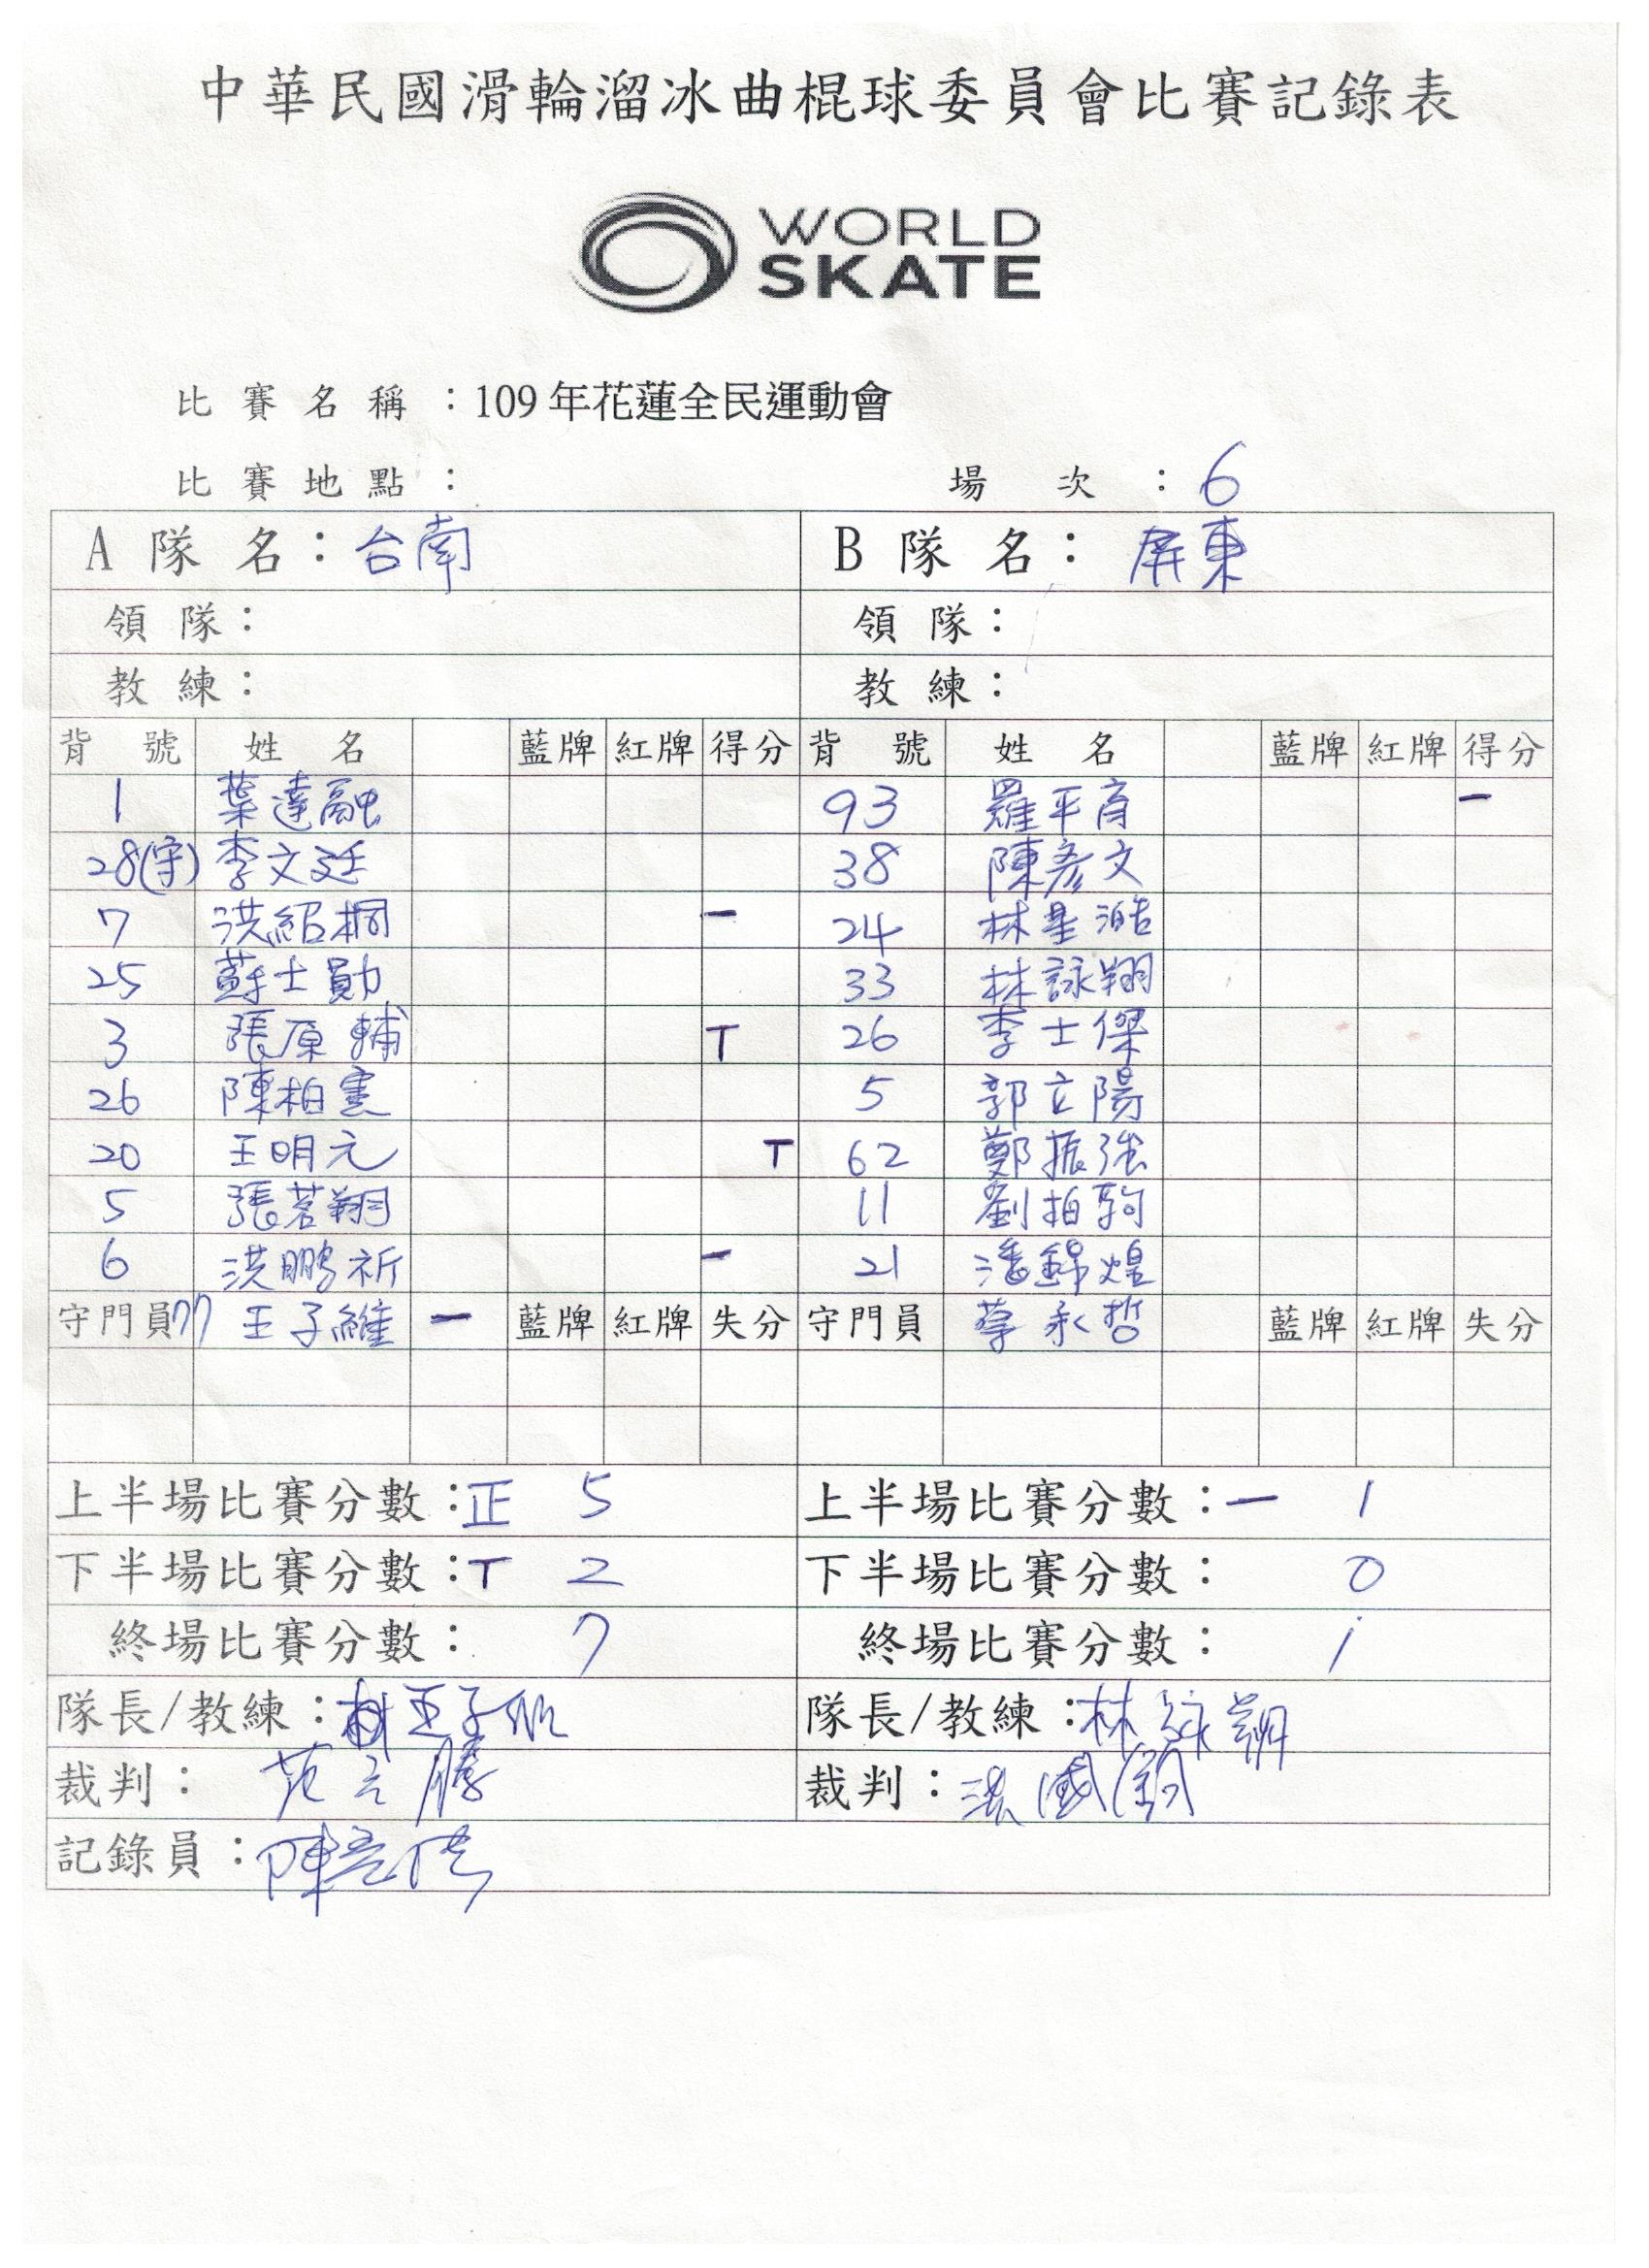 中華民國滑輪溜冰曲棍球委員會比賽記錄表
WORLD
SKATE
比賽名稱：109年花蓮全民運動會
比賽地點： 場次：6
A隊名：台南 B隊名：屏東
領隊： 領隊：
教練： 教練：
背號 姓名 藍牌 紅牌 得分 背號 姓名 藍牌 紅牌 得分
1 葉達融 93 羅平育 一
28(守) 李文廷 38 陳彥文
7 洪紹桐 一 24 林星澔
25 蘇士勛 33 林詠翔
3 張原輔 T 26 李士傑
26 陳柏憲 5 郭立陽
20 王明元 T 62 鄭振強
5 張茗翔 11 劉柏駒
6 洪鵬祈 一 21 潘錦煌
守門員77 王子維 一 藍牌 紅牌 失分 守門員 蔡永哲 藍牌 紅牌 失分
上半場比賽分數：正 5 上半場比賽分數：一 1
下半場比賽分數：T 2 下半場比賽分數： 0
終場比賽分數： 7 終場比賽分數： 1
隊長/教練：王子維 隊長/教練：林詠翔
裁判： 裁判：
記錄員：